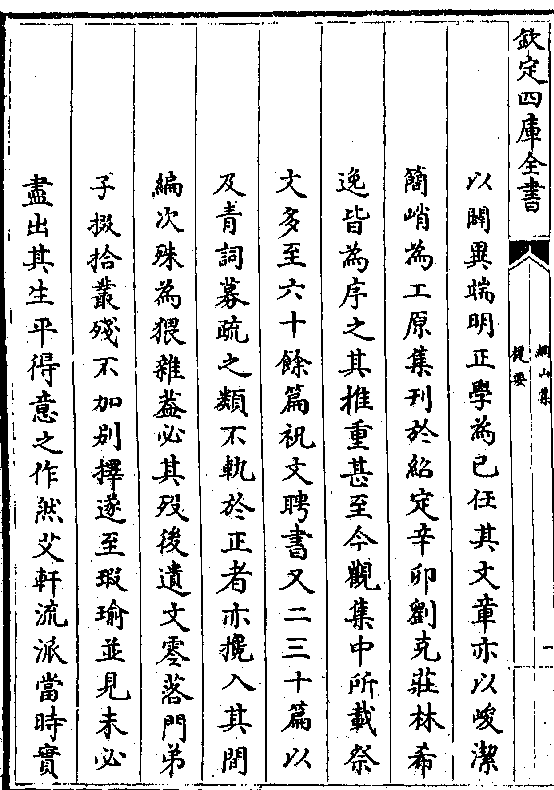 欽定四庫全書
綱山集
提要
以闢異端明正學為己任其文章亦以峻潔
簡峭為工原集刊於紹定辛卯劉克莊林希
逸皆為序之其推重甚至今觀集中所載祭
文多至六十餘篇祝文聘書又二三十篇以
及青詞募疏之類不軌於正者亦攙入其間
編次殊為猥雜葢必其歿後遺文零落門弟
子掇拾叢殘不加别擇遂至瑕瑜並見未必
盡出其生平得意之作然艾軒流派當時實